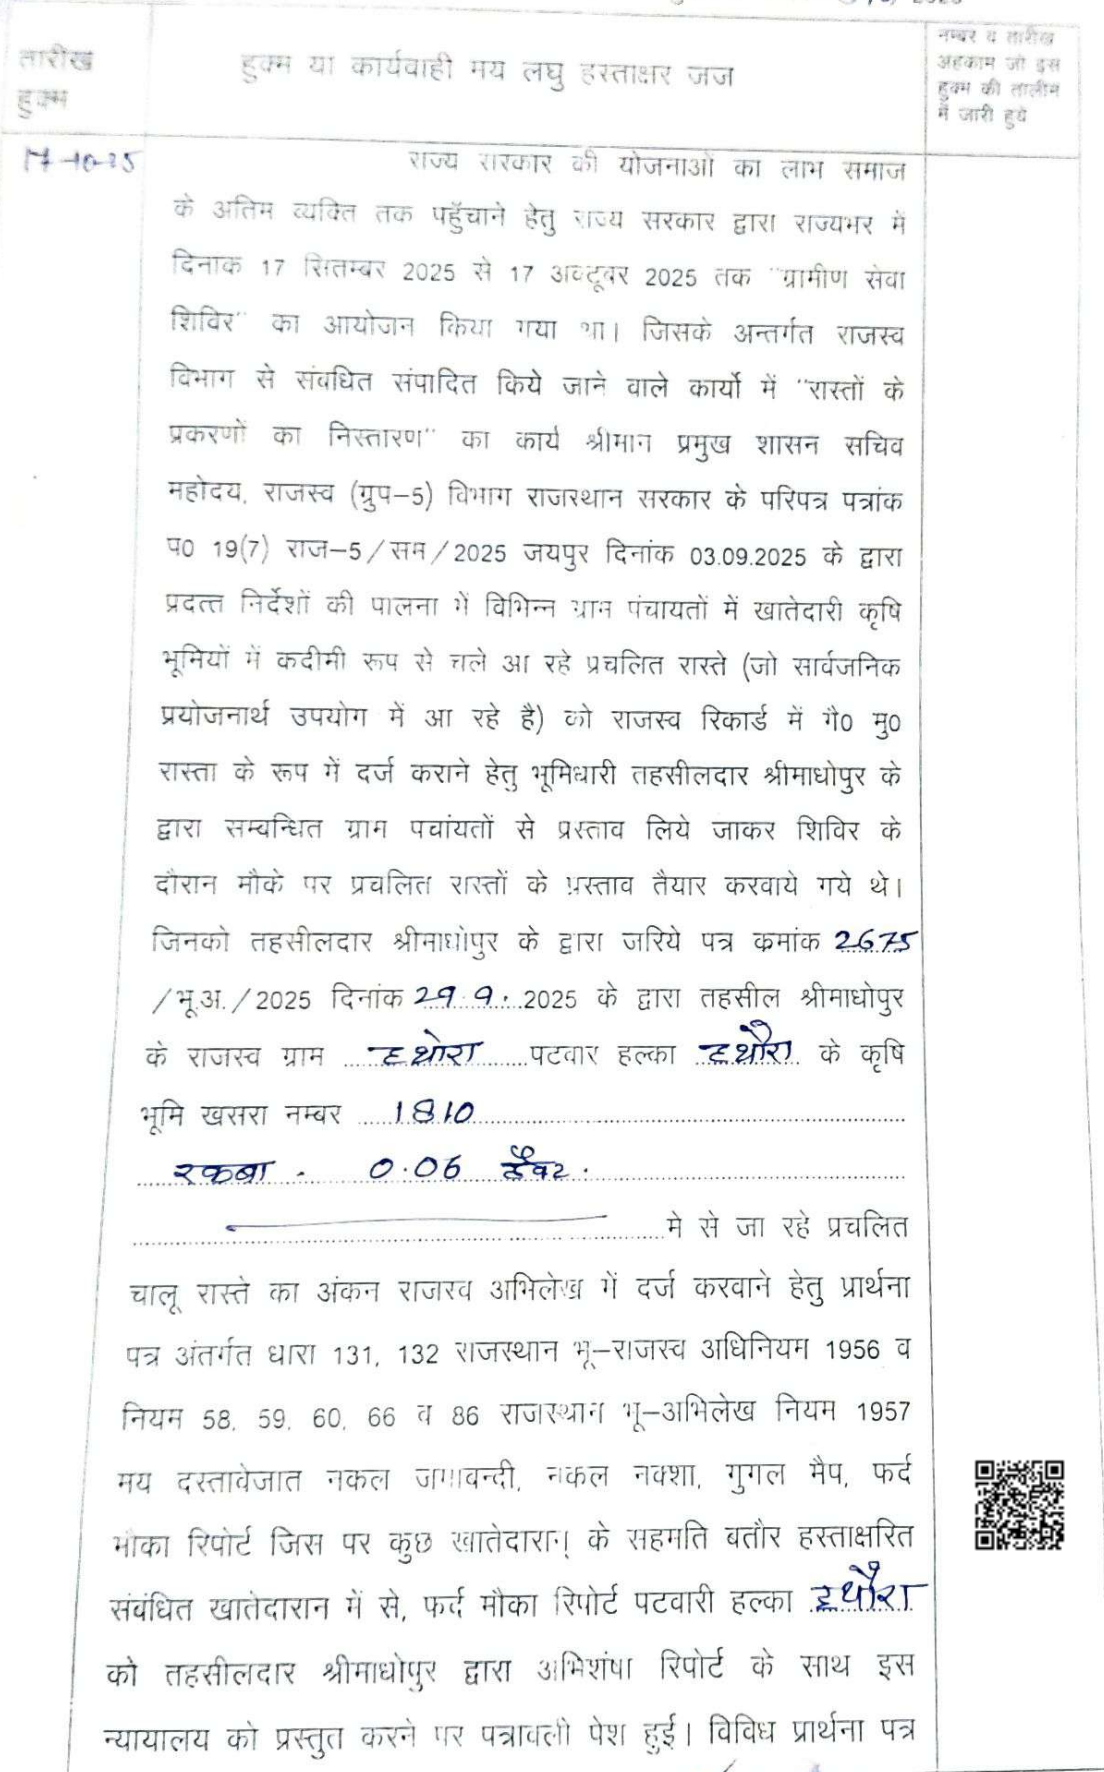 तारीख
हुक्म
हुक्म या कार्यवाही मय लघु हस्ताक्षर जज
नम्बर व तारीख
अहकाम जो इस
हुक्म की तालीम
में जारी हुये
17-10-25
राज्य सरकार की योजनाओं का लाभ समाज
के अंतिम व्यक्ति तक पहुँचाने हेतु राज्य सरकार द्वारा राज्यभर में
दिनांक 17 सितम्बर 2025 से 17 अक्टूबर 2025 तक "ग्रामीण सेवा
शिविर" का आयोजन किया गया था। जिसके अन्तर्गत राजस्व
विभाग से संबधित संपादित किये जाने वाले कार्यो में "रास्तों के
प्रकरणों का निस्तारण" का कार्य श्रीमान प्रमुख शासन सचिव
महोदय, राजस्व (ग्रुप-5) विभाग राजस्थान सरकार के परिपत्र पत्रांक
प0 19(7) राज-5/सम/2025 जयपुर दिनांक 03.09.2025 के द्वारा
प्रदत्त निर्देशों की पालना में विभिन्न ग्राम पंचायतों में खातेदारी कृषि
भूमियों में कदीमी रूप से चले आ रहे प्रचलित रास्ते (जो सार्वजनिक
प्रयोजनार्थ उपयोग में आ रहे है) को राजस्व रिकार्ड में गै0 मु0
रास्ता के रूप में दर्ज कराने हेतु भूमिधारी तहसीलदार श्रीमाधोपुर के
द्वारा सम्बन्धित ग्राम पचांयतों से प्रस्ताव लिये जाकर शिविर के
दौरान मौके पर प्रचलित रास्तों के प्रस्ताव तैयार करवाये गये थे।
जिनको तहसीलदार श्रीमाधोपुर के द्वारा जरिये पत्र क्रमांक 2675
/भू.अ./2025 दिनांक 29.9. 2025 के द्वारा तहसील श्रीमाधोपुर
के राजस्व ग्राम ....... पटवार हल्का ....... के कृषि
भूमि खसरा नम्बर .....1810.....
रकबा . 0.06 हैक्ट.
.....मे से जा रहे प्रचलित
चालू रास्ते का अंकन राजस्व अभिलेख में दर्ज करवाने हेतु प्रार्थना
पत्र अंतर्गत धारा 131, 132 राजस्थान भू-राजस्व अधिनियम 1956 व
नियम 58, 59, 60, 66 व 86 राजस्थान भू-अभिलेख नियम 1957
मय दस्तावेजात नकल जमाबन्दी, नकल नक्शा, गुगल मैप, फर्द
मौका रिपोर्ट जिस पर कुछ खातेदारान के सहमति बतौर हस्ताक्षरित
संबंधित खातेदारान में से, फर्द मौका रिपोर्ट पटवारी हल्का
को तहसीलदार श्रीमाधोपुर द्वारा अभिशंषा रिपोर्ट के साथ इस
न्यायालय को प्रस्तुत करने पर पत्रावली पेश हुई। विविध प्रार्थना पत्र